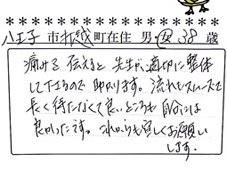 八王子市打越町在住 男・女 38 歳
痛みを伝えると先生が適切に整体
して下さるので助かります。流れもスムーズで
長く待たなくて良いところも自分には
良かったです。これからも宜しくお願い
します。